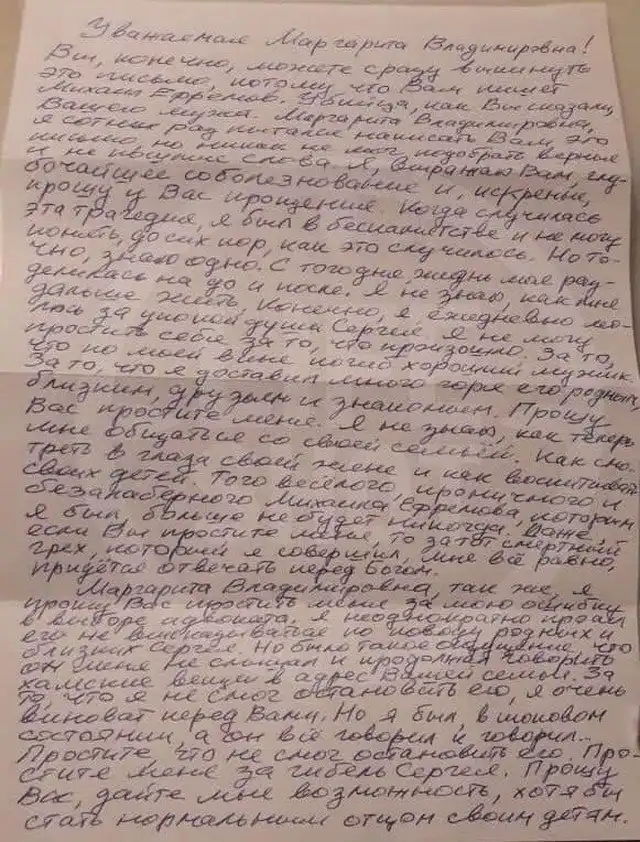 Уважаемая Маргарита Владимировна!
Вы, конечно, можете сразу выкинуть
это письмо, потому что Вам пишет
Михаил Ефремов. Убийца, как Вы сказали,
Вашего мужа. Маргарита Владимировна,
я сотник раз пытался написать Вам это
письмо, но никак не мог подобрать верные
и не пошлые слова. Я, выражаю Вам, глу-
бочайшее соболезнование и, искренне,
прошу у Вас прощение. Когда случилась
эта трагедия, я был в беспамятстве и не могу
понять, до сих пор, как это случилось. Но то-
чно, знаю одно. С того дня, жизнь моя раз-
делилась на до и после. Я не знаю, как мне
дальше жить. Конечно, я ежедневно мо-
люсь за упокой души Сергея. Я не могу
простить себя за то, что произошло. За то,
что по моей вине погиб хороший мужик.
За то, что я доставил много горя его родным,
близким, друзьям и знакомым. Прошу
Вас простите меня. Я не знаю, как теперь
мне общаться со своей семьёй. Как смо-
треть в глаза своей жене и как воспитывать
своих детей. Того весёлого, ироничного и
безалаберного Михаила Ефремова, которым
я был, больше не будет никогда. Даже,
если Вы простите меня, то за тот смертный
грех, который я совершил, мне всё равно,
придётся отвечать перед Богом.
Маргарита Владимировна, так же, я
прошу Вас простить меня за мою ошибку
в выборе адвоката. Я неоднократно просил
его не высказываться по поводу родных и
близких Сергея. Но было такое ощущение, что
он меня не слышал и продолжал говорить
хамские вещи в адрес Вашей семьи. За
то, что я не смог остановить его, я очень
виноват перед Вами. Но я был, в шоковом
состоянии, а он всё говорил и говорил..
Простите, что не смог остановить его. Про-
стите меня за гибель Сергея. Прошу
Вас, дайте мне возможность, хотя бы
стать нормальным отцом своим детям.